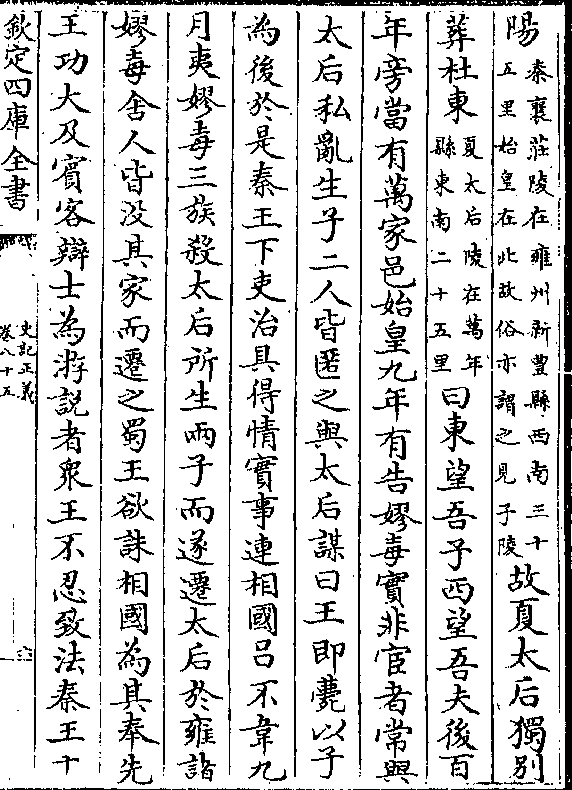 陽秦襄莊陵在雍州新豐縣西南三十五里始皇在北故俗亦謂之見子陵故夏太后獨別
葬杜東夏太后陵在萬年縣東南二十五里曰東望吾子西望吾夫後百
年旁當有萬家邑始皇九年有告嫪毐實非宦者常與
太后私亂生子二人皆匿之與太后謀曰王即薨以子
為後於是秦王下吏治具得情實事連相國呂不韋九
月夷嫪毐三族殺太后所生兩子而遂遷太后於雍諸
嫪毐舍人皆没其家而遷之蜀王欲誅相國為其奉先
王功大及賓客辯士為游説者衆王不忍致法秦王十
欽定四庫全書
史記正義
卷八十五
六